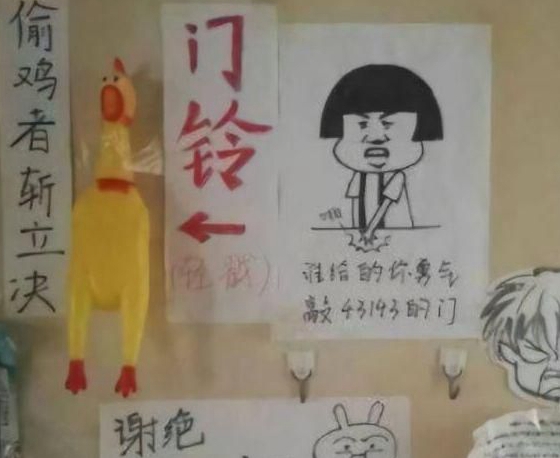 偷鸡者斩立决
门铃
(轻戳)
谁给的你勇气
敲43143的门
谢绝